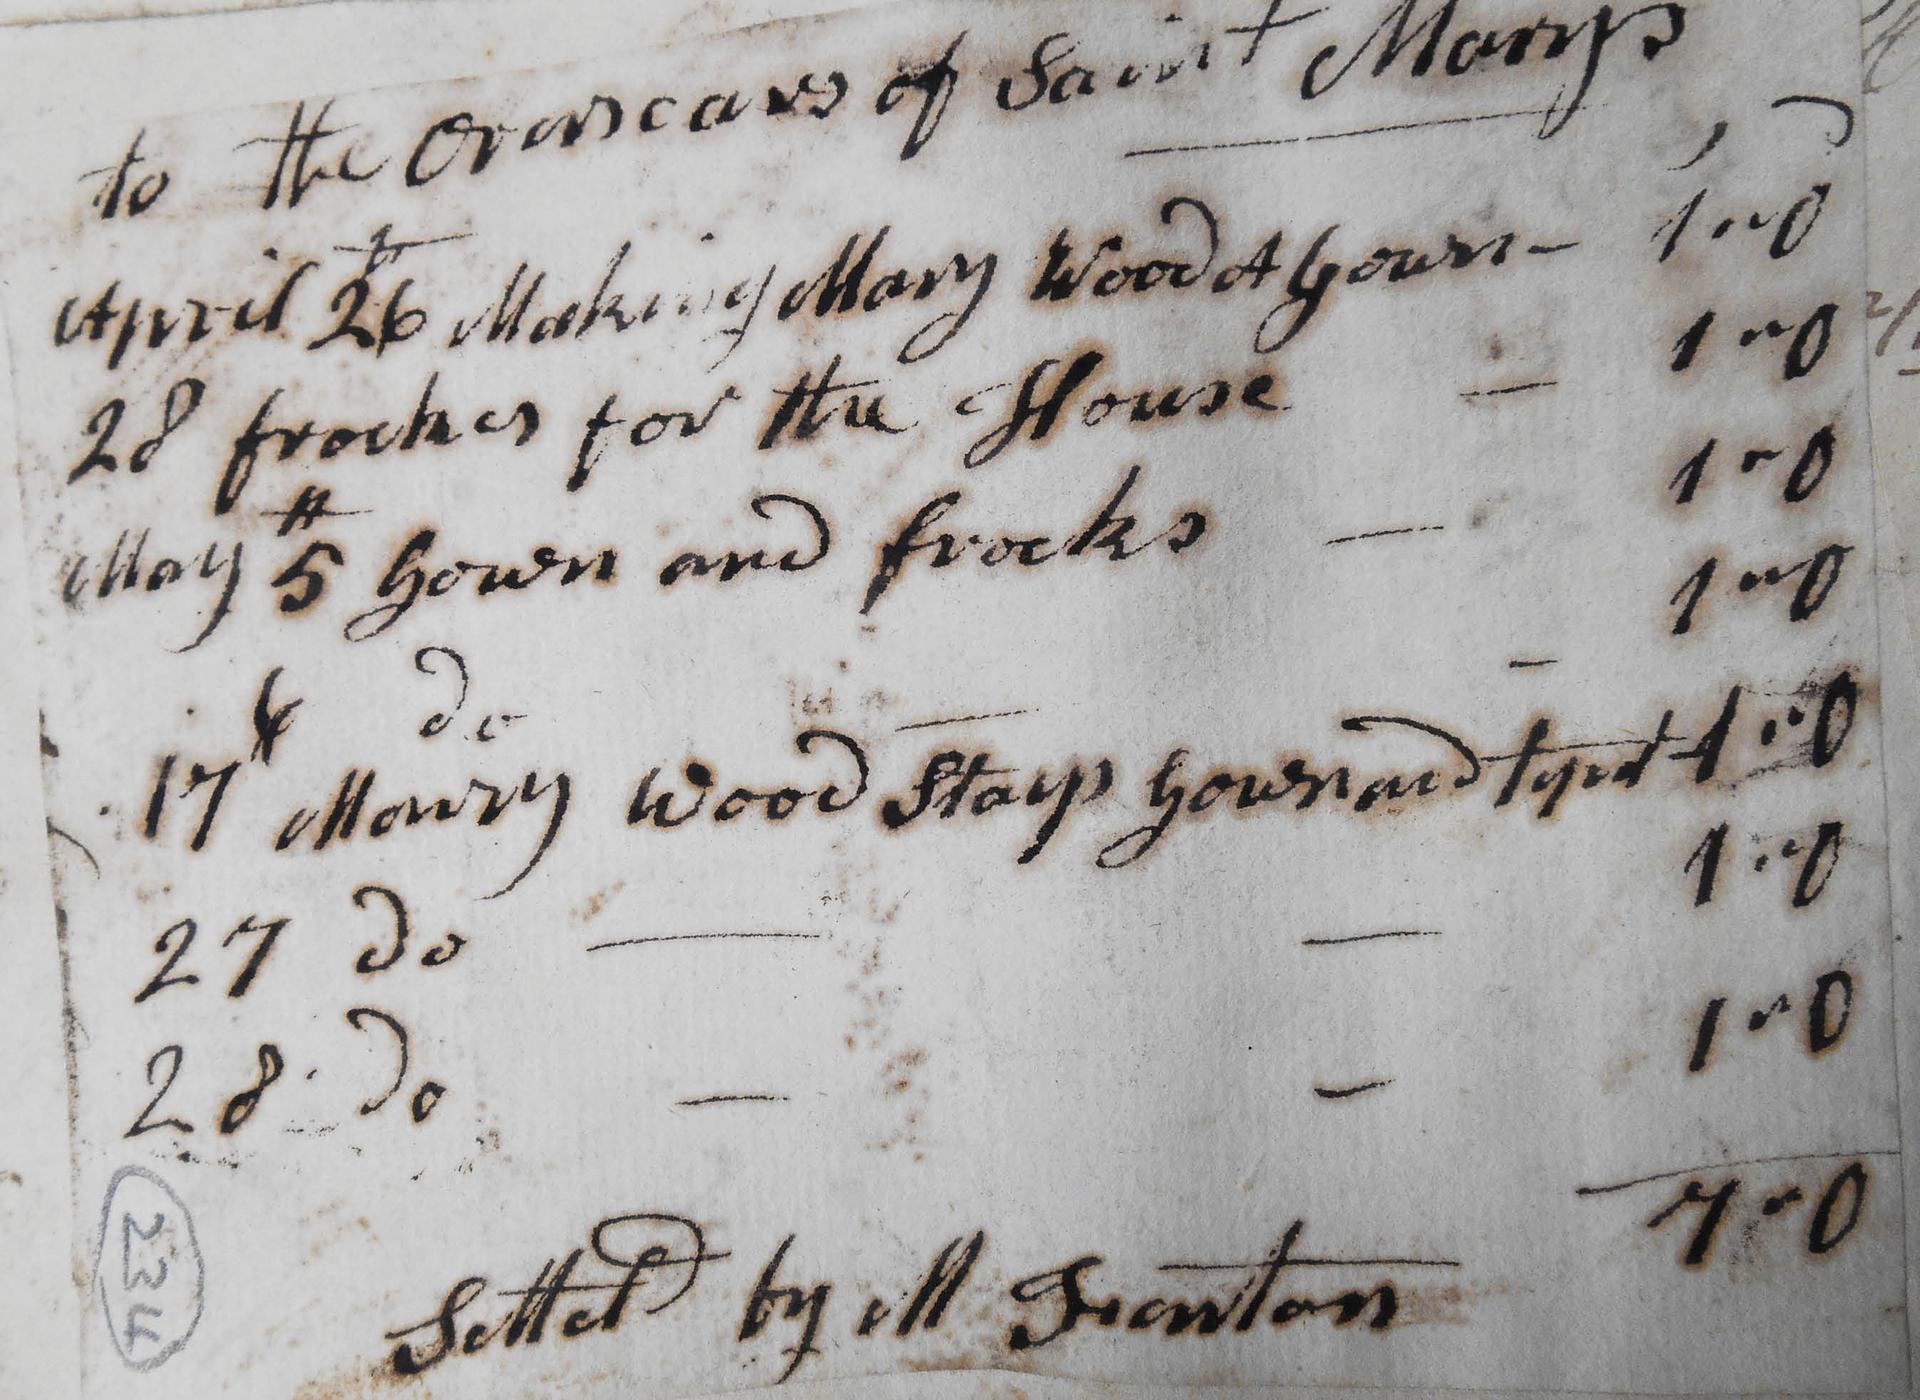 to the Overscears of Saint Marys
s d
April 26th Making Mary Wood A gown - 1 " 0
28 frockes for the House - 1 " 0
May 5th gown and frocks - 1 " 0
do - 1 " 0
17th Maury Wood Stays gown and 1 " 0
27 do - - 1 " 0
28 do - - 1 " 0
7 " 0
Setteld by M Fenton